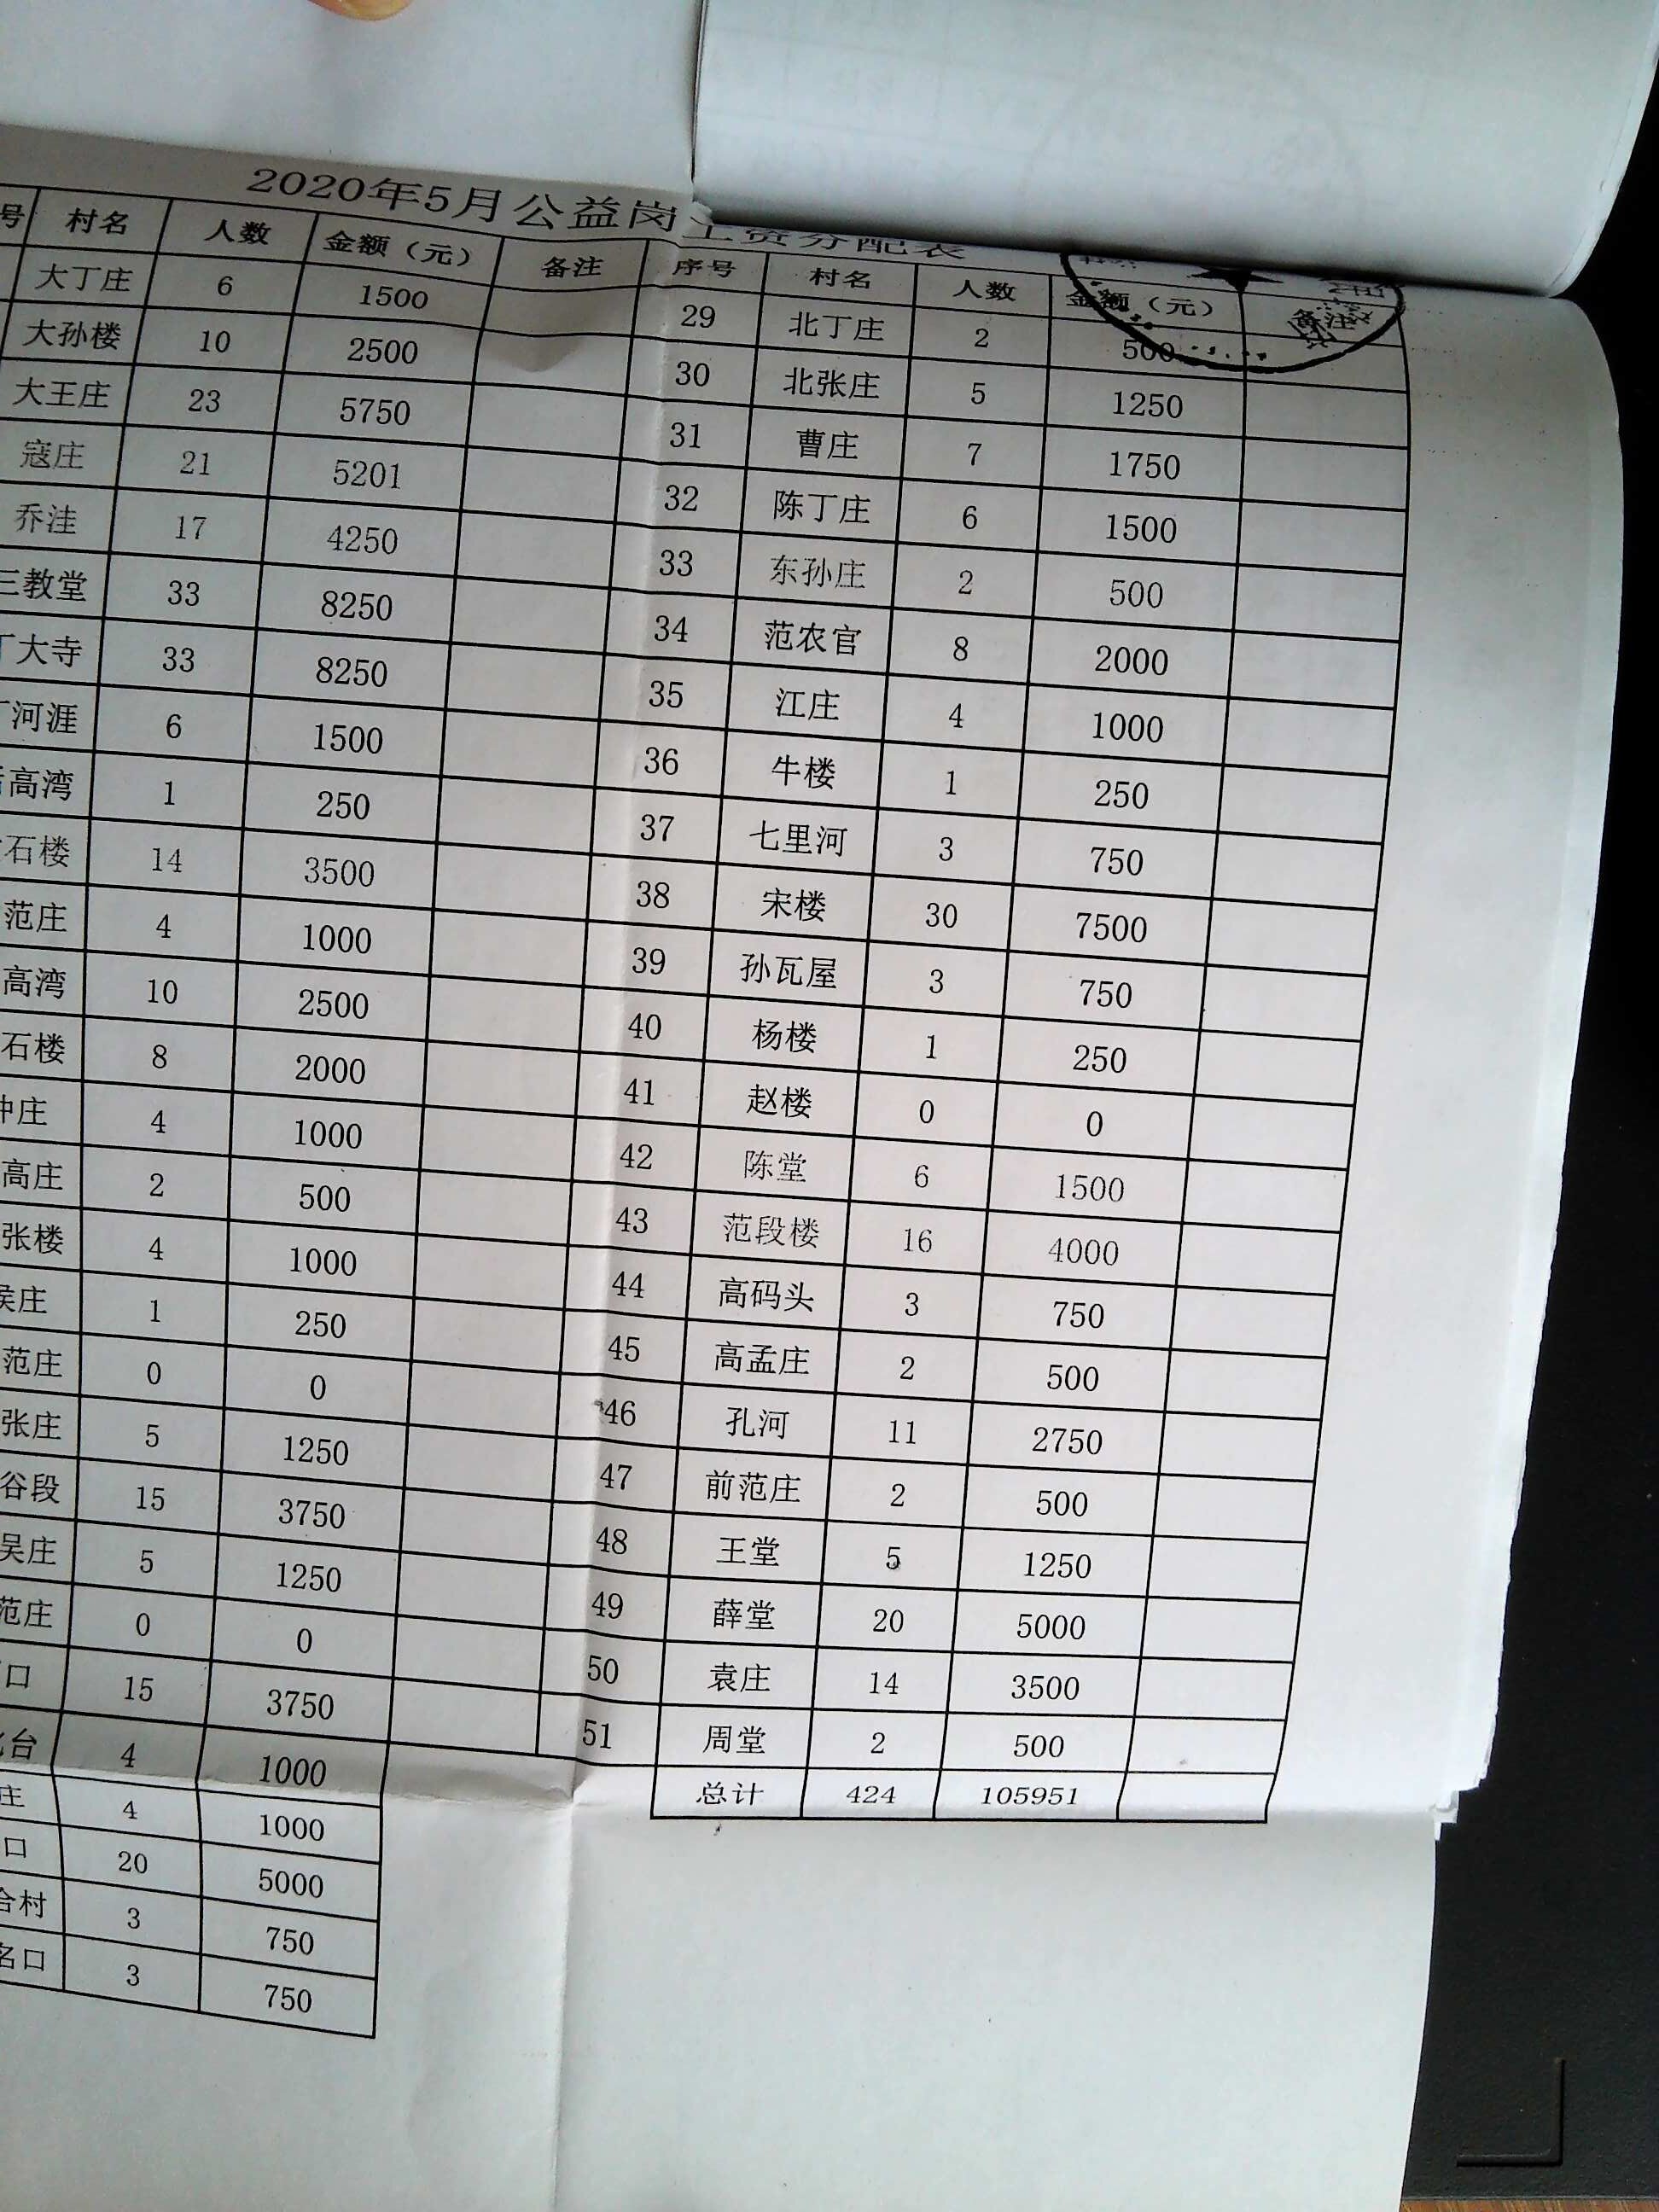 2020年5月公益岗工资分配表
号 村名 人数 金额（元） 备注 序号 村名 人数 金额（元） 备注
大丁庄 6 1500 29 北丁庄 2 500
大孙楼 10 2500 30 北张庄 5 1250
大王庄 23 5750 31 曹庄 7 1750
寇庄 21 5201 32 陈丁庄 6 1500
乔洼 17 4250 33 东孙庄 2 500
三教堂 33 8250 34 范农官 8 2000
丁大寺 33 8250 35 江庄 4 1000
河涯 6 1500 36 牛楼 1 250
高湾 1 250 37 七里河 3 750
石楼 14 3500 38 宋楼 30 7500
范庄 4 1000 39 孙瓦屋 3 750
高湾 10 2500 40 杨楼 1 250
石楼 8 2000 41 赵楼 0 0
庄 4 1000 42 陈堂 6 1500
高庄 2 500 43 范段楼 16 4000
张楼 4 1000 44 高码头 3 750
庄 1 250 45 高孟庄 2 500
范庄 0 0 46 孔河 11 2750
张庄 5 1250 47 前范庄 2 500
谷段 15 3750 48 王堂 5 1250
吴庄 5 1250 49 薛堂 20 5000
范庄 0 0 50 袁庄 14 3500
口 15 3750 51 周堂 2 500
台 4 1000 总计 424 105951
庄 4 1000
口 20 5000
合村 3 750
名口 3 750